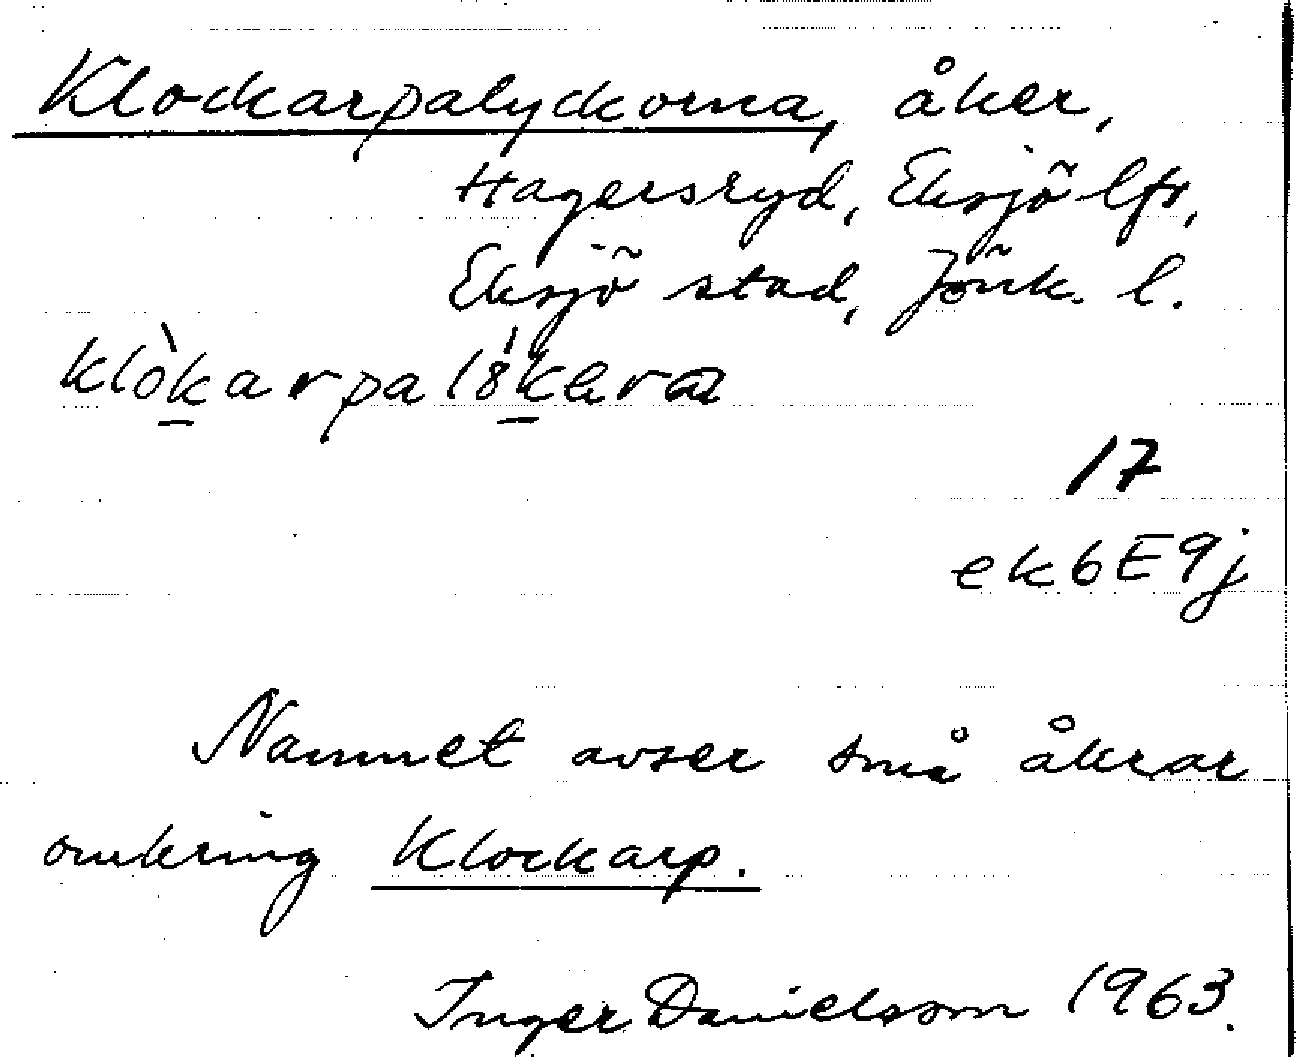 Klockarpalyckorna, åker,
Hagersryd, Eksjö lfs,
Eksjö stad, Jönk. l.
17
ek6E9j
Namnet avser små åkrar
omkring Klockarp.
Inger Danielsson 1963.